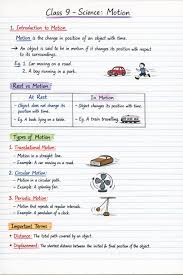 Class 9 - Science: Motion
1. Introduction to Motion
Motion is the change in position of an object with time.
→ An object is said to be in motion if it changes its position with respect to its surroundings.
Eg. 1. Car moving on a road.
2. A boy running in a park.
Rest vs Motion
At Rest
In Motion
- Object does not change its position with time.
- Object changes its position with time.
- Eg. A book lying on a table.
- Eg. A train travelling
Types of Motion
1. Translational Motion:
- Motion in a straight line.
- Example: A car moving on a road.
2. Circular Motion:
- Motion in a circular path.
- Example: A spinning fan.
3. Periodic Motion:
- Motion that repeats at regular intervals.
- Example: A pendulum of a clock.
Important Terms
• Distance: The total path covered by an object.
• Displacement: The shortest distance between the initial & final position of the object.